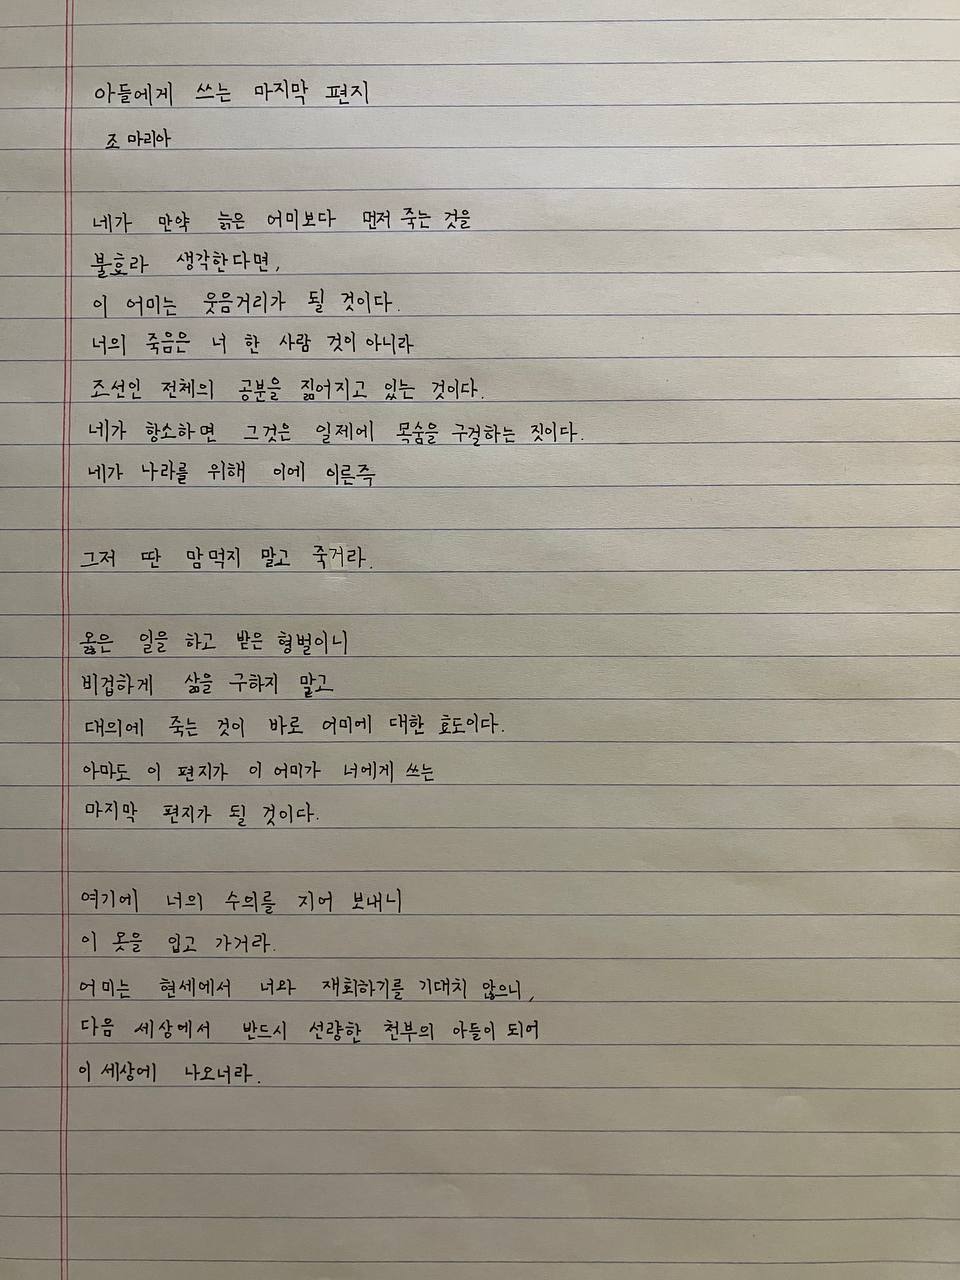 아들에게 쓰는 마지막 편지
조 마리아
네가 만약 늙은 어미보다 먼저 죽는 것을
불효라 생각한다면,
이 어미는 웃음거리가 될 것이다.
너의 죽음은 너 한 사람 것이 아니라
조선인 전체의 공분을 짊어지고 있는 것이다.
네가 항소하면 그것은 일제에 목숨을 구걸하는 짓이다.
네가 나라를 위해 이에 이른즉
그저 딴 맘먹지 말고 죽거라.
옳은 일을 하고 받은 형벌이니
비겁하게 삶을 구하지 말고
대의에 죽는 것이 바로 어미에 대한 효도이다.
아마도 이 편지가 이 어미가 너에게 쓰는
마지막 편지가 될 것이다.
여기에 너의 수의를 지어 보내니
이 옷을 입고 가거라.
어미는 현세에서 너와 재회하기를 기대치 않으니,
다음 세상에서 반드시 선량한 천부의 아들이 되어
이 세상에 나오너라.